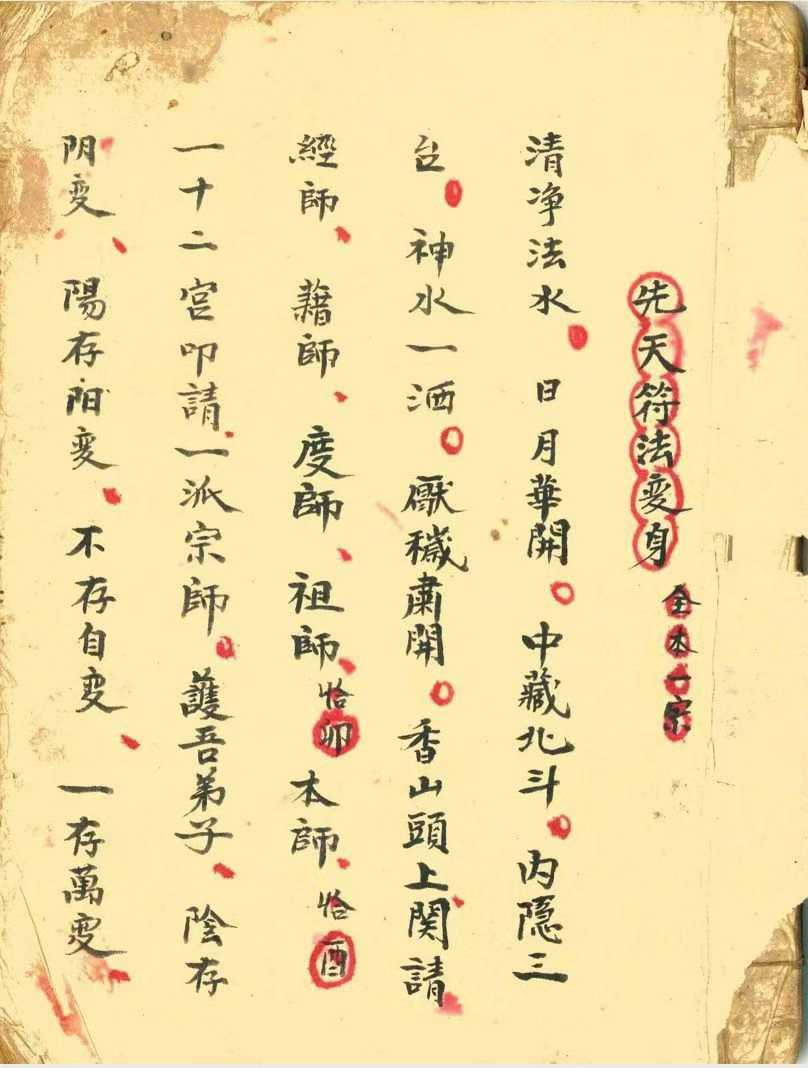 先天符法变身 全本一宗
清净法水、日月華開。中藏北斗。内隐三
台。神水一洒。厭穢肅開。香山頭上関請
經師、藉師、度師、祖師、恰卯本師、恰酉
一十二宫叩請一派宗師。護吾弟子、陰存
阴变、陽存阳变、不存自变、一存萬变